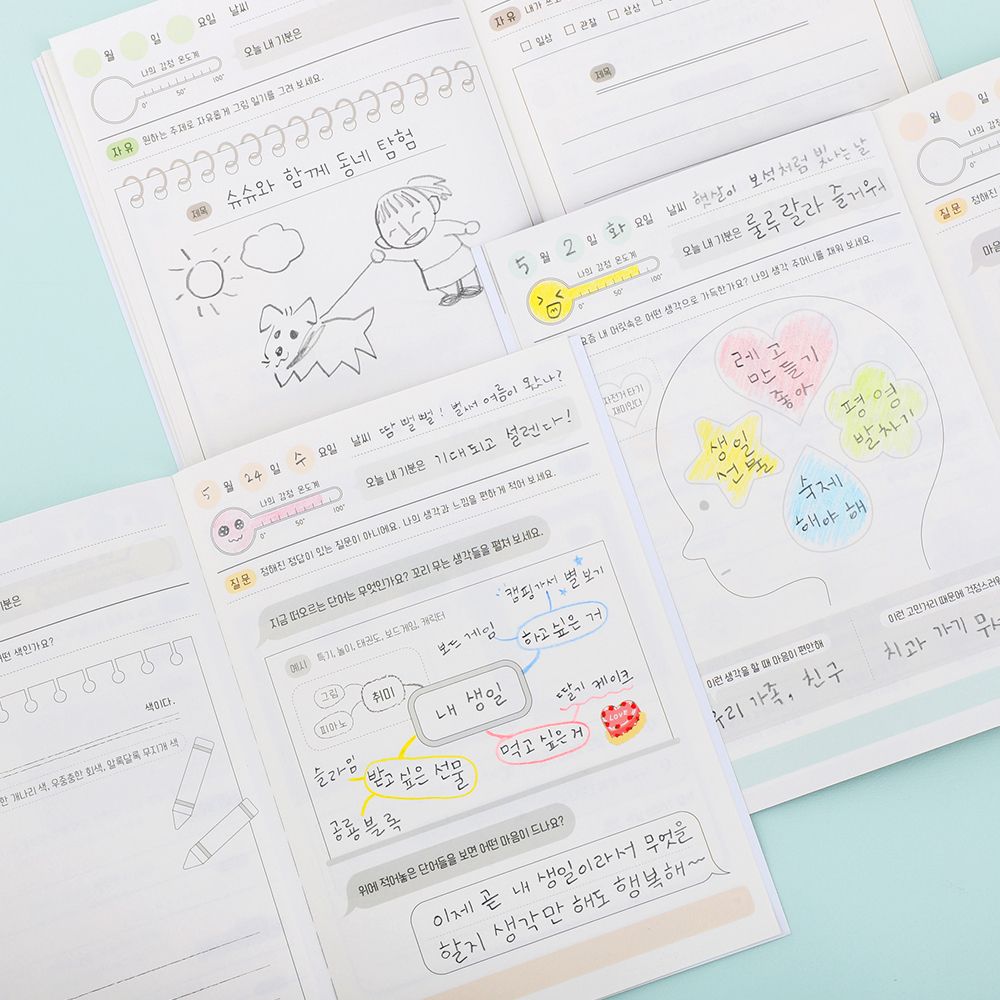 월 일 요일 날씨
나의 감정 온도계
0° 50° 100°
오늘 내 기분은
자유 원하는 주제로 자유롭게 그림 일기를 그려 보세요.
제목 슈슈와 함께 동네 탐험
자유 내가
일상 관찰 상상
제목
5 월 2 일 화 요일 날씨 햇살이 보석처럼 빛나는 날
나의 감정 온도계
0° 50° 100°
오늘 내 기분은 룰루랄라 즐거워
요즘 내 머릿속은 어떤 생각으로 가득한가요? 나의 생각 주머니를 채워 보세요.
자전거 타기
재미있다
레고
만들기
좋아
평영
발차기
생일
선물
숙제
해야 해
이런 생각을 할 때 마음이 편안해
우리 가족, 친구
이런 고민거리 때문에 걱정스러워
치과 가기 무서
월 일
나의 감정
0°
질문 정해진
마음
5 월 24 일 수 요일 날씨 땀 뻘뻘! 벌써 여름이 왔나?
나의 감정 온도계
0° 50° 100°
오늘 내 기분은 기대되고 설렌다!
질문 정해진 정답이 있는 질문이 아니에요. 나의 생각과 느낌을 편하게 적어 보세요.
지금 떠오르는 단어는 무엇인가요? 꼬리 무는 생각들을 펼쳐 보세요.
예시 특기, 놀이, 태권도, 보드게임, 캐릭터
그림
취미
피아노
보드 게임
캠핑가서 별 보기
하고 싶은 거
내 생일
딸기 케이크
먹고 싶은 거
LOVE
슬라임
받고 싶은 선물
공룡 블록
위에 적어놓은 단어들을 보면 어떤 마음이 드나요?
이제 곧 내 생일이라서 무엇을
할지 생각만 해도 행복해~
기분은
떤 색인가요?
색이다.
한 개나리 색, 우중충한 회색, 알록달록 무지개 색